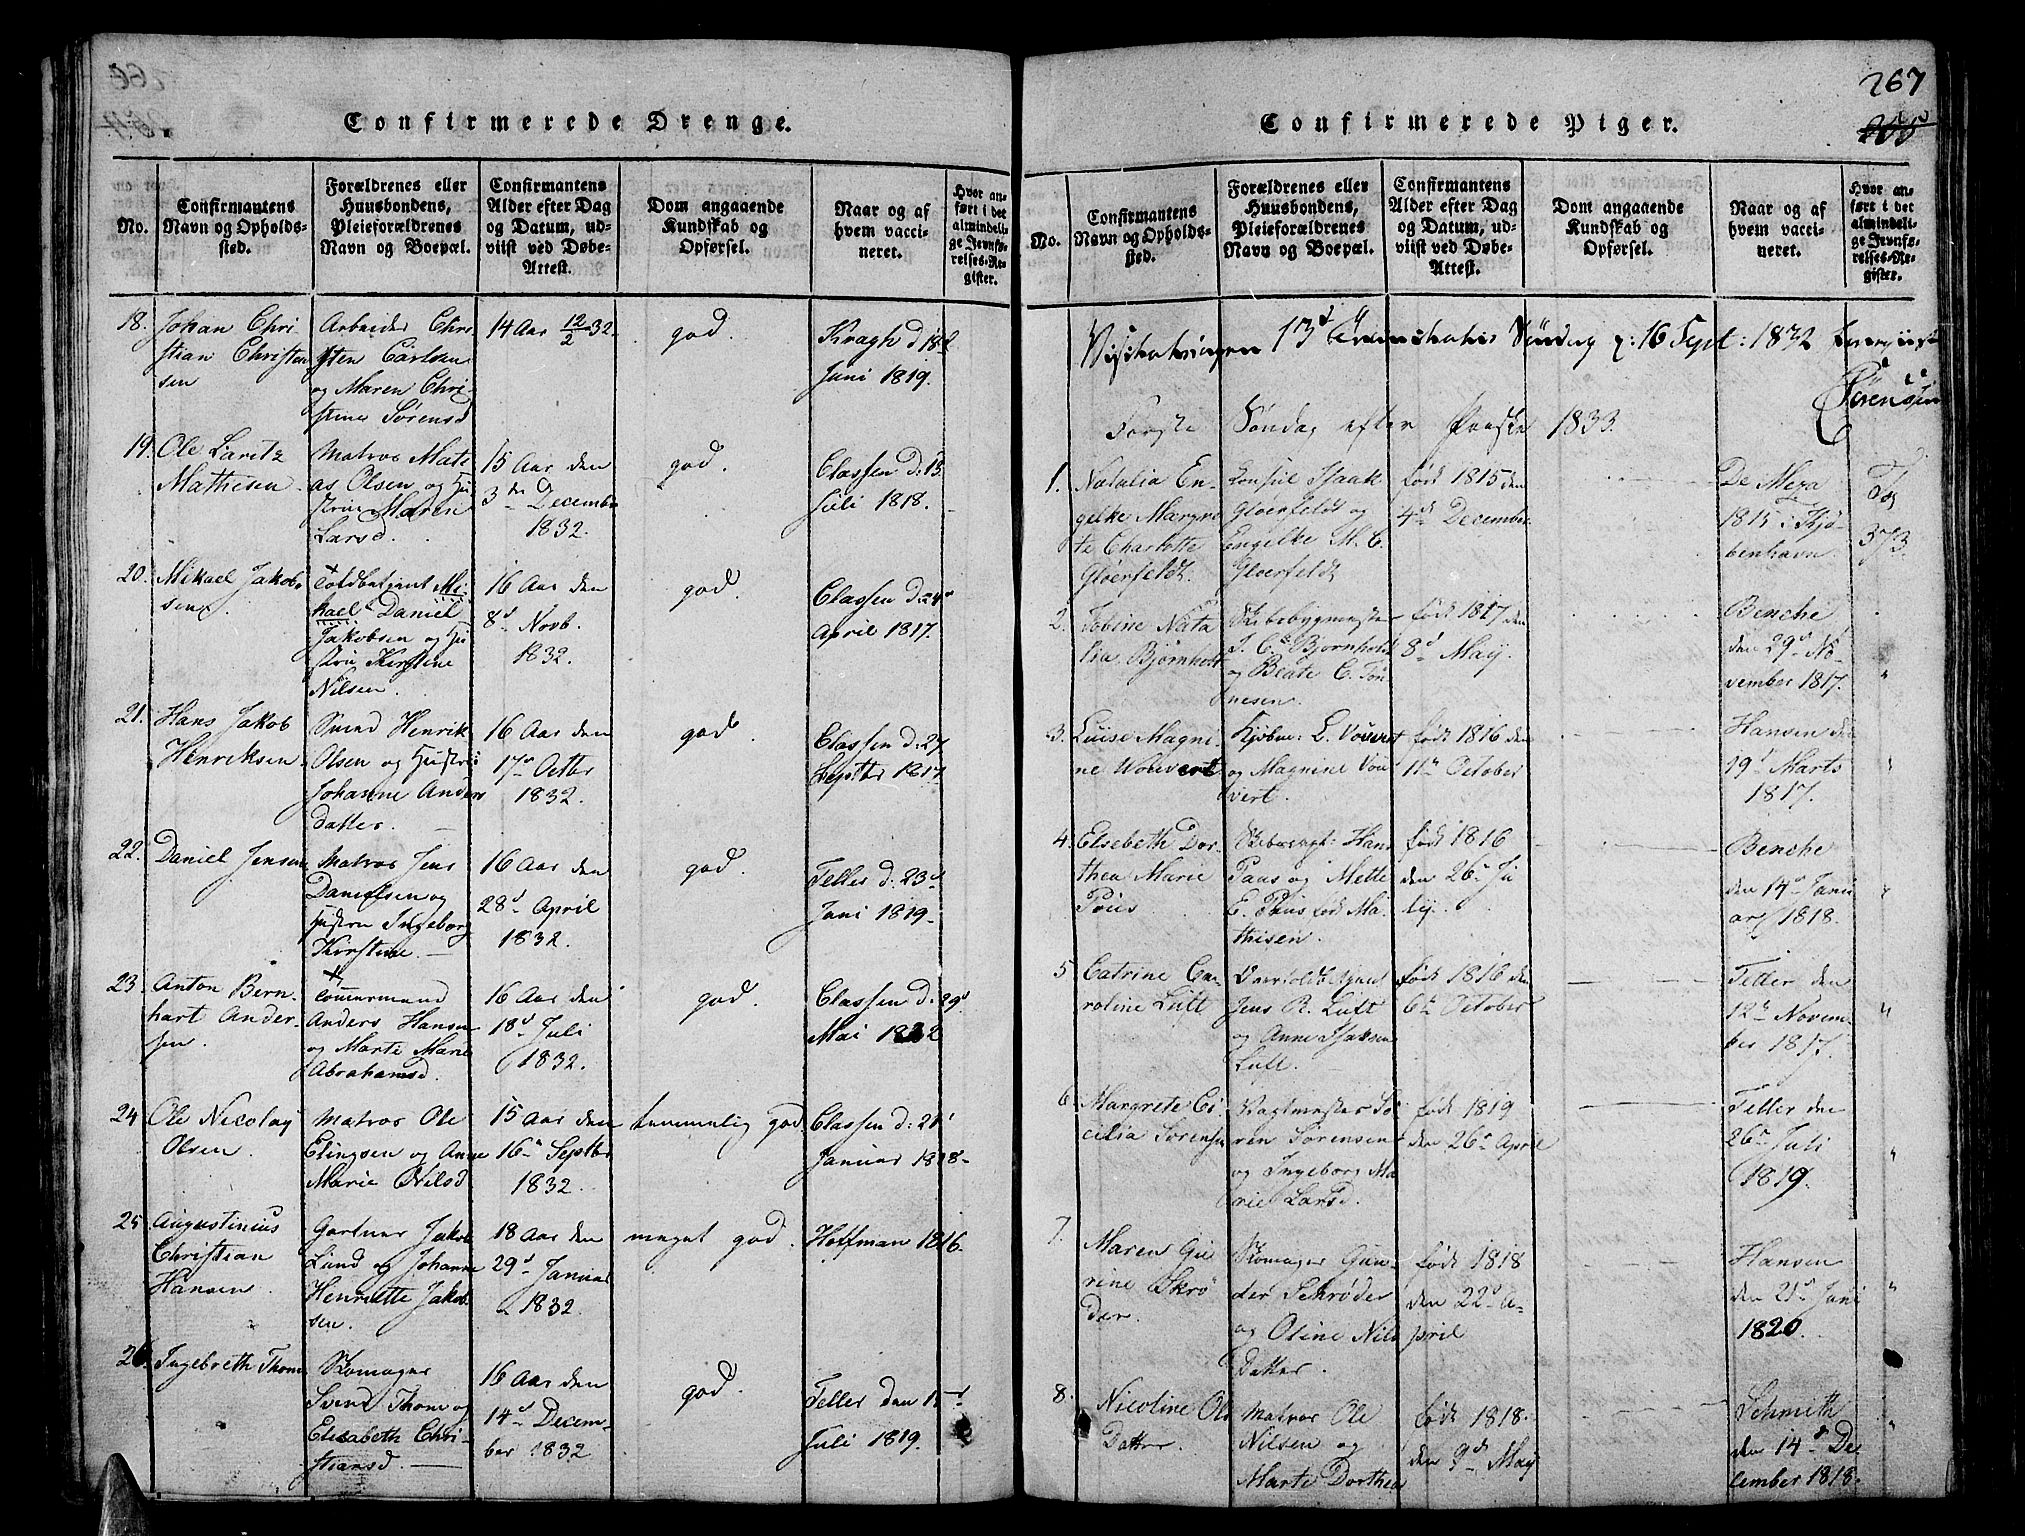 Confirmerede Drenge.
No.
Confirmantens
Navn og Opholds-
sted.
Forældrenes eller
Huusbondens,
Pleieforældrenes
Navn og Boepæl.
Confirmantens
Alder efter Dag
og Datum, ud-
viist ved Døbe-
Attest.
Dom angaaende
Kundskab og
Opførsel.
Naar og af
hvem vacci-
neret.
Hvor an-
ført i det
almindeli-
ge Jevnfø-
relses-Re-
gister.
18.
Johan Chri-
stian Christen
sen
Arbeider Chri
sten Carlsen
og Maren Chri-
stine Sørensd
14 Aar 12/2 32
god.
Kragh d 18
Juni 1819.
19.
Ole Laritz
Mathesen
Matros Mati
as Olsen og Hu
strue Maren
Larsd.
15 Aar den
3 December
1832.
god.
Classen d: 13
Juli 1818.
20.
Mikael Jakob-
sen.
Toldbetient Mi-
kael Daniel
Jakobsen og Hu
stru Kirstine
Nilsen.
16 Aar den
8d Novb.
1832.
god.
Classen d: 24
April 1817.
21.
Hans Jakob
Henriksen
Svend Henrik
Olsen og Hustru
Johanne Anders
datter.
16 Aar den
17 Octbr
1832.
god
Classen d: 27
Septbr 1817
22.
Daniel Jensen
Matros Jens
Danielsen og
Hustru Ingeborg
Kirstine
16 Aar den
28d April
1832.
god.
Teller d: 23d
Juni 1819.
23.
Anton Bern-
hart Ander-
sen.
Tømmermand
Anders Hansen
og Marte Marie
Abrahamsd.
16 Aar den
18d Juli
1832.
god.
Classen d: 29d
Mai 1832
24
Ole Nicolay
Olsen.
Matros Ole
Elingsen og Anne
Marie Nilsd
15 Aar den
16 Septbr
1832.
temmelig god.
Classen d: 21
Januar 1818
25
Augustinius
Christian
Hansen.
Gartner Jakob
Lund og Johanne
Henriette Jakob
sen.
18 Aar den
29d Januar
1832.
meget god.
Hoffman 1816.
26.
Ingebreth Thome
Skomager
Svend Thome og
Elisabeth Chri-
stiansd.
16 Aar den
14d Decem-
ber 1832
god.
Teller den 1
Juli 1819.
267
Confirmerede Piger.
No.
Confirmantens
Navn og Opholds-
sted.
Forældrenes eller
Huusbondens,
Pleieforældrenes
Navn og Boepæl.
Confirmantens
Alder efter Dag
og Datum, ud-
viist ved Døbe-
Attest.
Dom angaaende
Kundskab og
Opførsel.
Naar og af
hvem vacci-
neret.
Hvor an-
ført i det
almindeli-
ge Jevnfø-
relses-Re-
gister.
13d Trinitatis Søndag 16 Sept: 1832
Sørensen
Første Søndag efter Paaske 1833.
1.
Natalia En-
gelke Margre
te Charlotte
Gløerfeldt.
Konsul Isaak
Gløerfeldt og
Engelke M. C.
Gløerfeldt
født 1815 den
4d December
De Meza
1815 i Kjø-
benhavn.
373.
2.
Tobine Nata
lia Bjørnholt
Skibsbygmester
J. C. Bjørnholt
og Beate C. Tøn
nesen.
født 1817 den
8d May.
Benche
den 29d No-
vember 1817.
"
3.
Luise Magni-
ne Wouvert
Kjøbm: L. Vouvert
og Magnine Vou
vert.
født 1816 den
11 October
Hansen den
19d Marts
1817.
"
4.
Elsebeth Dor-
thea Marie
Pous
Hans
Paus og Mette
E. Paus fød Ma-
thisen.
født 1816
den 26 Ju
ly.
Benche
den 14d Janu
ary 1818.
"
5
Catrine Ca-
roline Luft
Overtoldbetjent
Jens R. Luft
og Anne Isaksen
Luft.
født 1816 den
6 October
Teller den
12 Novem-
ber 1817.
"
6.
Margrete Ce-
cilia Sørensen
Vagtmester Sø
ren Sørensen
og Ingeborg Ma
rie Larsd.
født 1819
den 26 April
Teller den
26 Juli
1819.
"
7.
Maren Gu
rine Skrø
der.
Skomager Gun-
der Schrøder
og Oline Nils
datter.
født 1818
den 22d A-
pril
Hansen
den 21d Juni
1820.
"
8.
Nicoline Ols
Datter.
Matros Ole
Nilsen og
Marte Dorthea
født 1818.
den 9d May
Schmith
den 14d De
cember 1818.
"